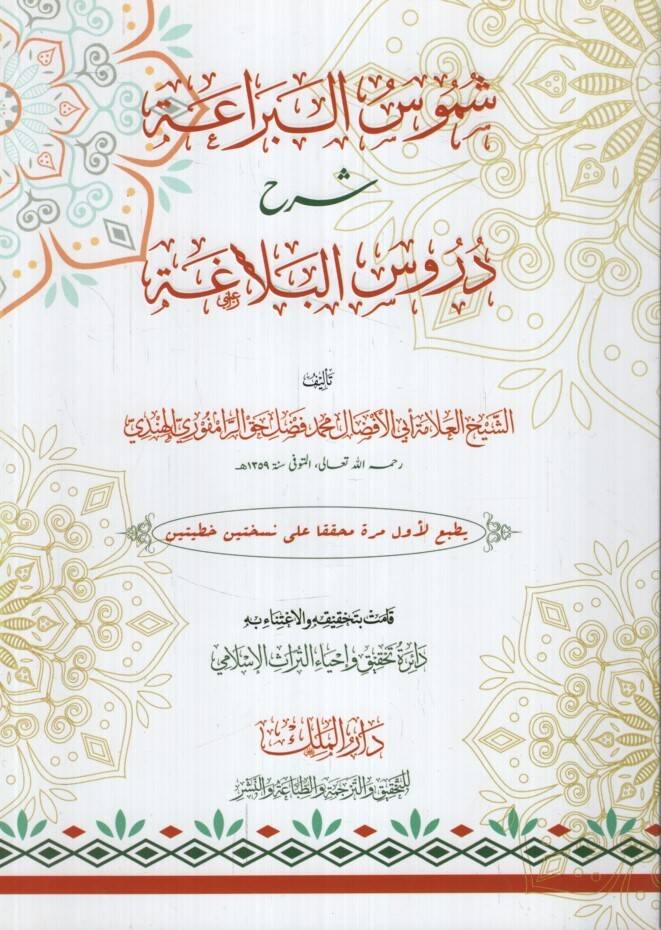 شُمُوسُ البَرَاعَة
شرح
دُرُوسِ البَلَاغَة
تأليف
الشَّيْخ العَلَّامَة أبي الأَفْضَال محمد فَضْل حَق الرَّامْفُوري الهِنْدِي
رحمه الله تعالى، المتوفى سنة ١٣٥٩هـ
يطبع لأول مرة محققا على نسختين خطيتين
قَامَتْ بتَحْقِيْقِهِ والاعْتِنَاءِ بِهِ
دَائِرَةُ تَحْقِيْق وإحْيَاءِ التُّرَاثِ الإِسْلَامِي
دَارُ المَلِك
للتَّحْقِيْق والتَّرْجَمَة والطِّبَاعَة والنَّشْر